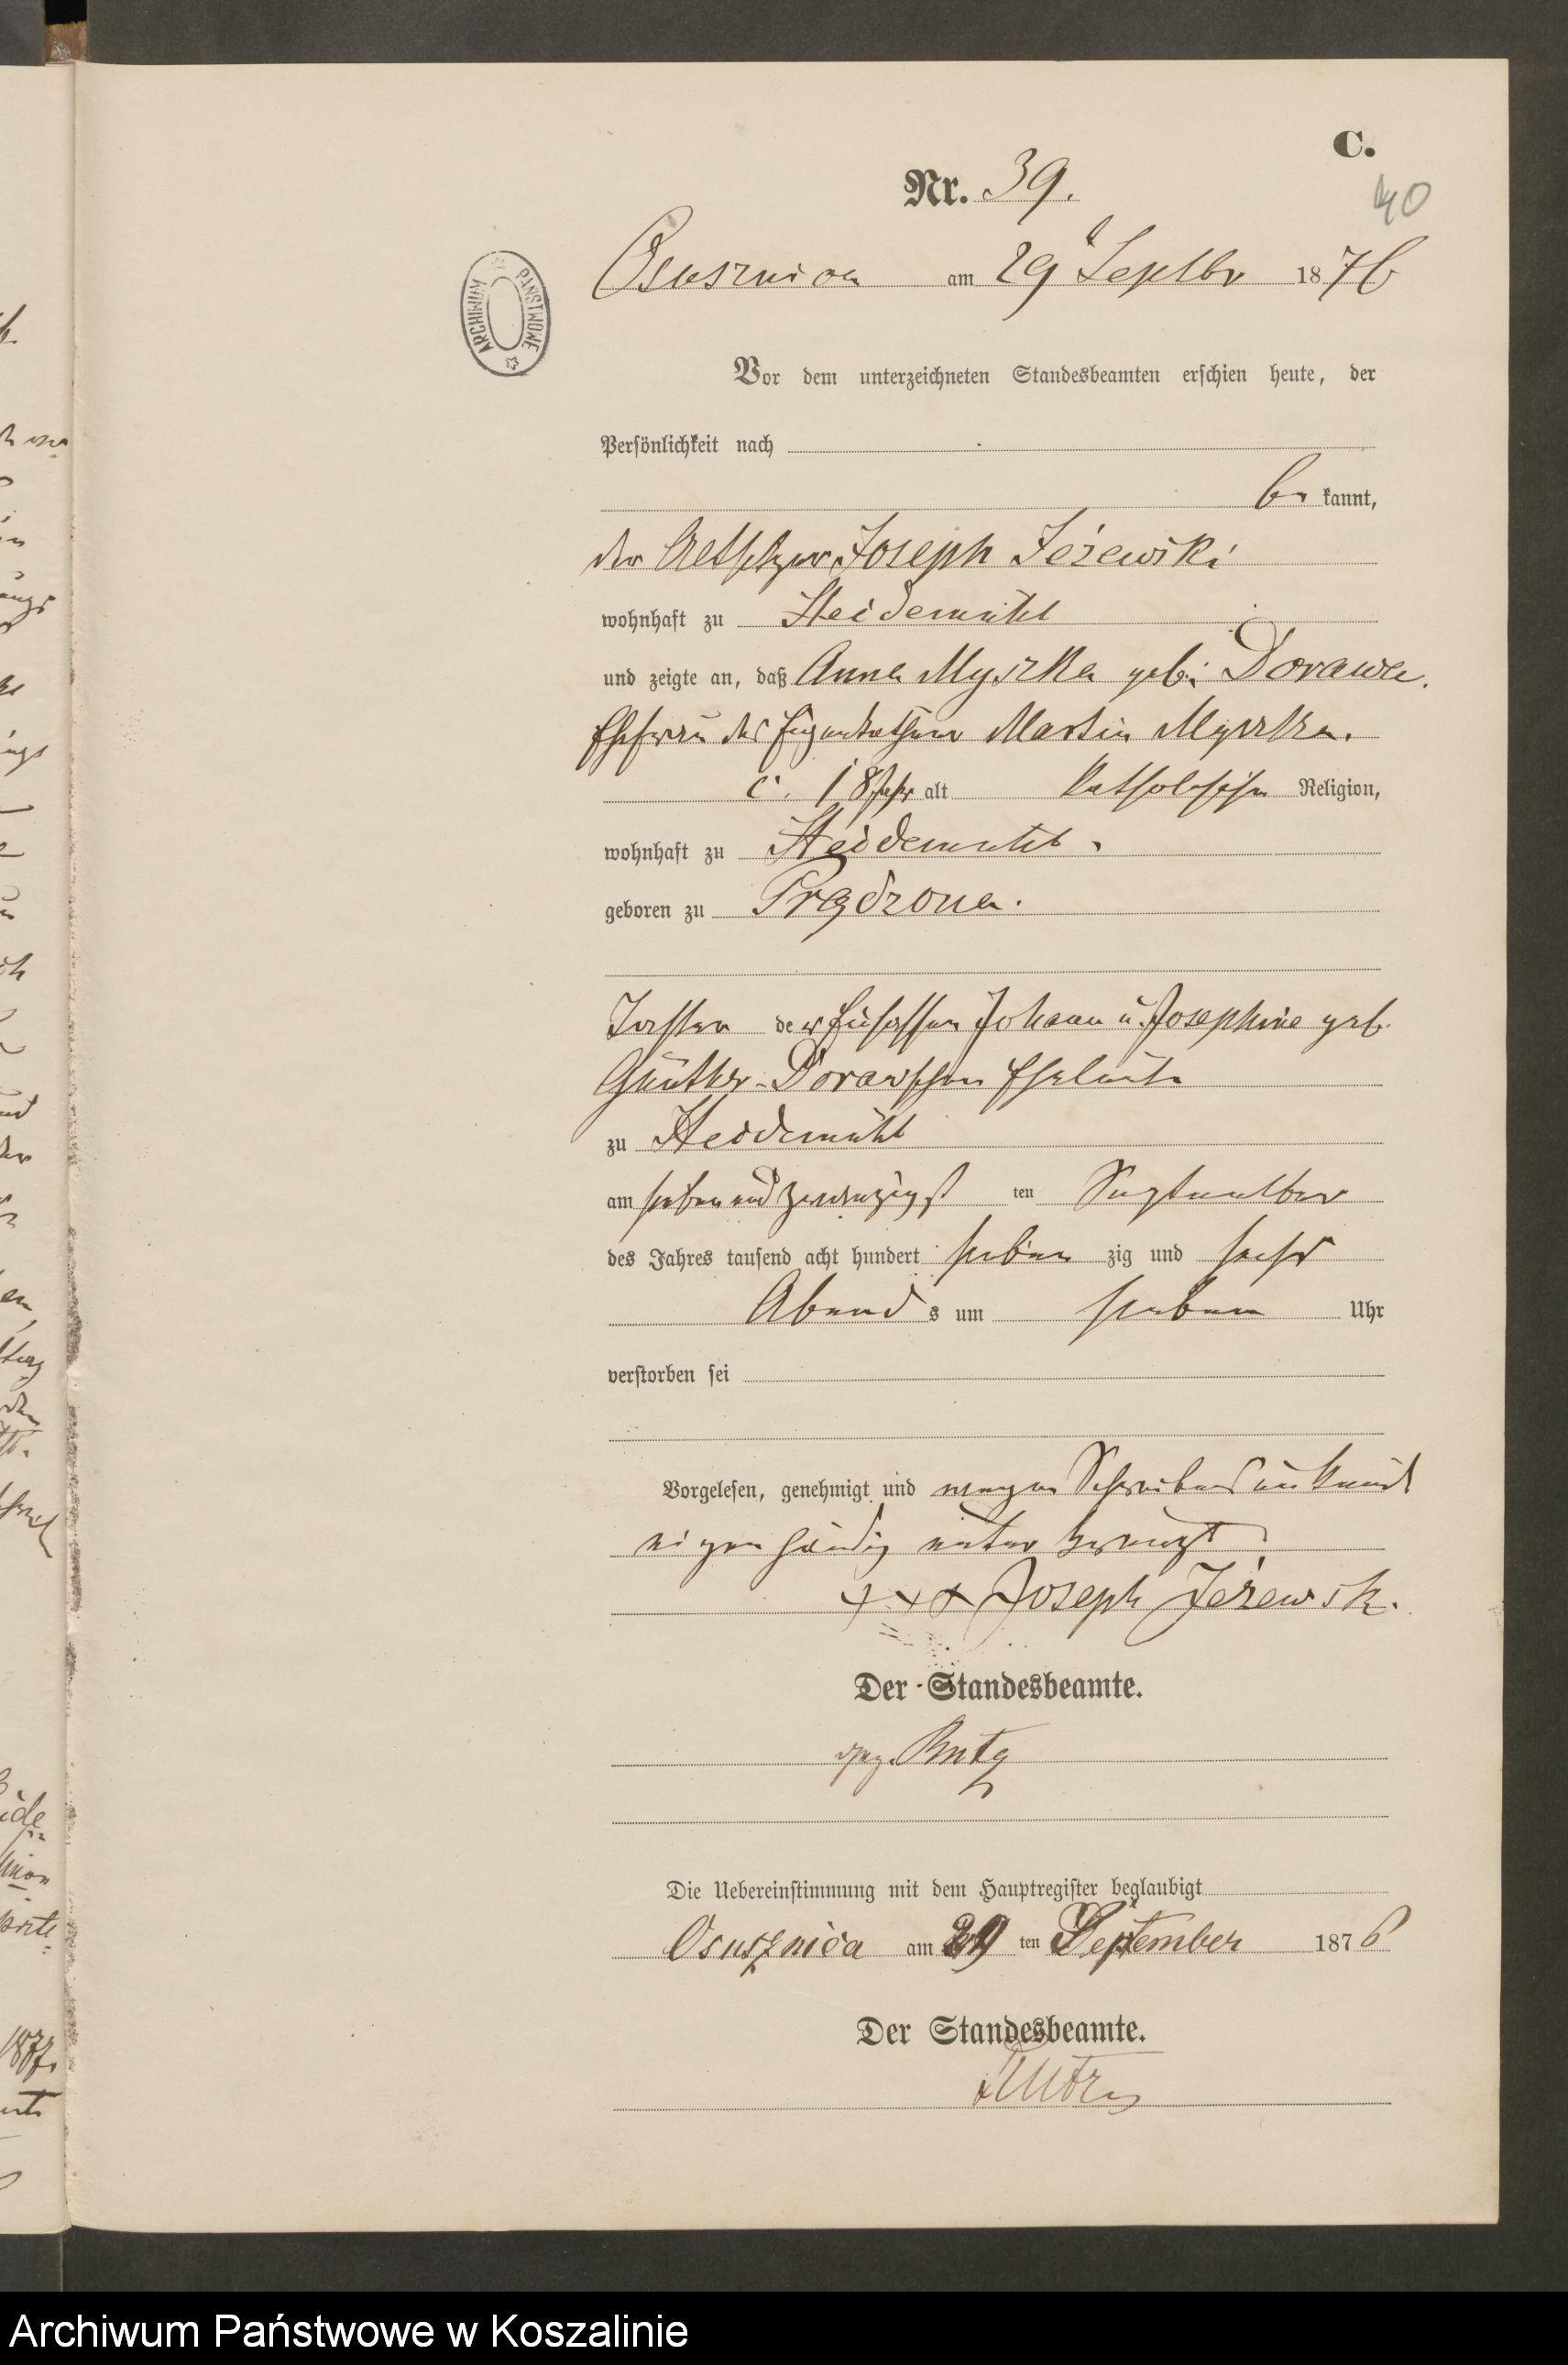 C.
Nr. 39.
40
Osusznica am 29 Septbr 1876
ARCHIWUM PAŃSTWOWE
Vor dem unterzeichneten Standesbeamten erschien heute, der
Persönlichkeit nach
be kannt,
der Altsitzer Joseph Jeżewski
wohnhaft zu Heidemühl
und zeigte an, daß Anna Myszka geb: Dorawa.
Ehefrau des Eigenkäthner Martin Myszka.
c. 18 Jahr alt katholischer Religion,
wohnhaft zu Heidemühl.
geboren zu Prądzona.
Tochter der Einsassen Johann u. Josephine geb.
Günther-Dorawschen Eheleute
zu Heidemühl
am sieben und zwanzigst ten September
des Jahres tausend acht hundert sieben zig und sechs
Abend s um sieben Uhr
verstorben sei
Vorgelesen, genehmigt und wegen Schreibensunkunde
eigenhändig unterkreuzt
+++ Joseph Jeżewski.
Der Standesbeamte.
gez.
Die Uebereinstimmung mit dem Hauptregister beglaubigt
Osusznica am 29 ten September 1876
Der Standesbeamte.
Archiwum Państwowe w Koszalinie